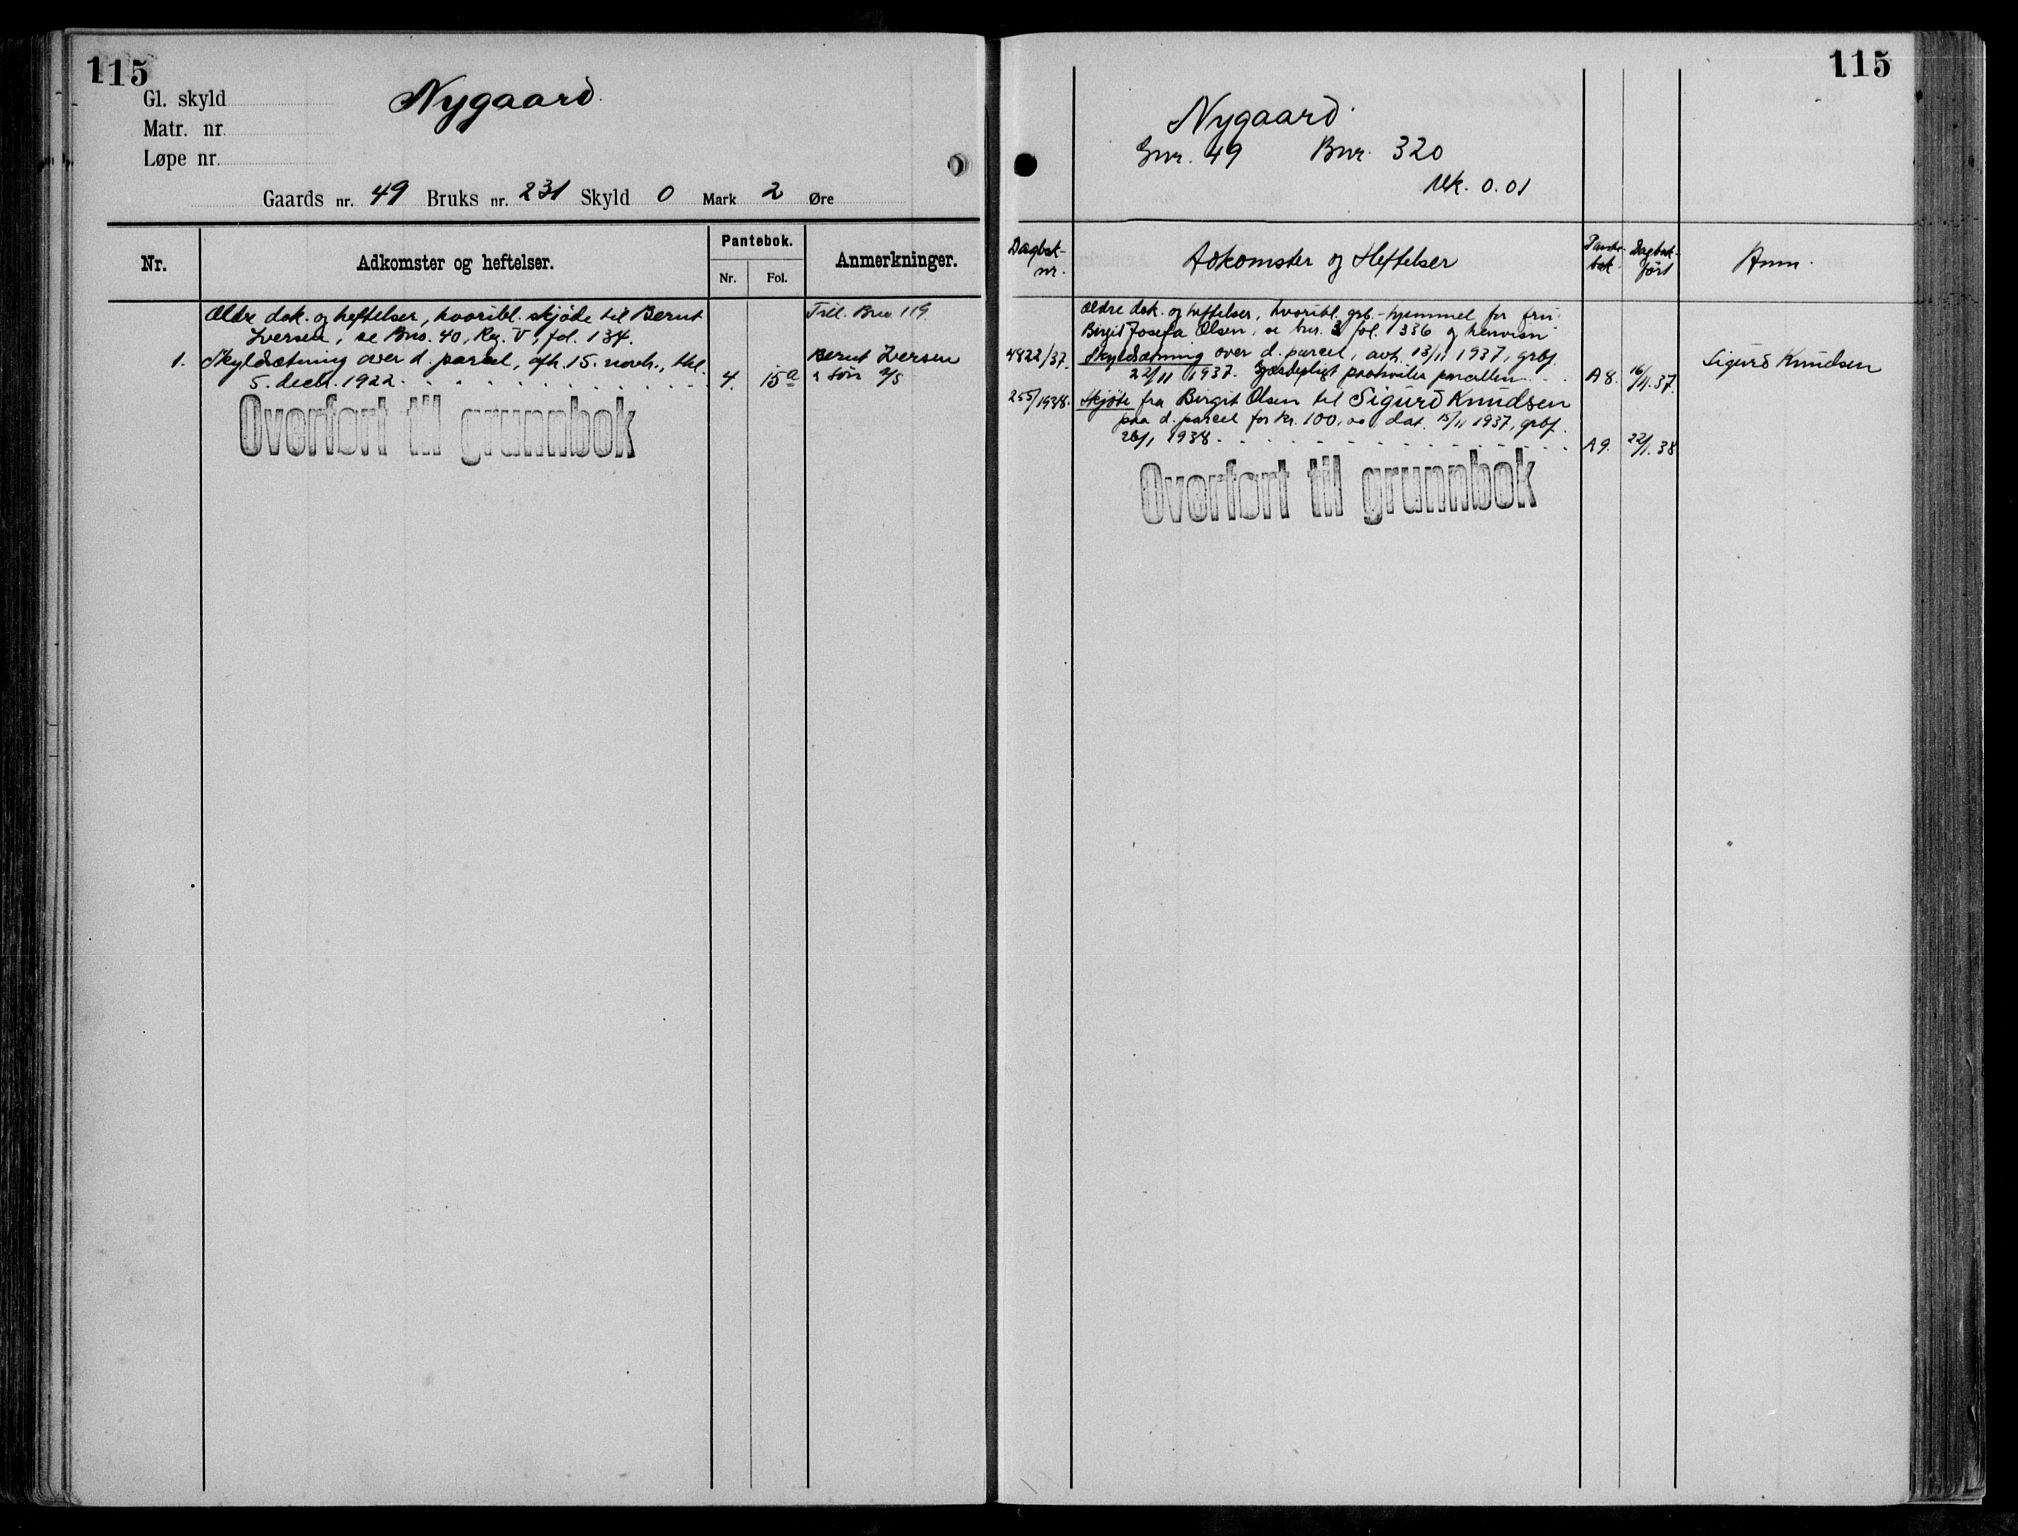 115
Gl. skyld
Matr. nr.
Løpe nr.
Nygaard.
Gaards nr. 49 Bruks nr. 231 Skyld 0 Mark 2 Øre
Nr.
Adkomster og heftelser.
Pantebok.
Nr.
Fol.
Anmerkninger.
Ældre dok. og heftelser, hvoribl. skjöde til Bernt
Iversen, se Bno. 40, Rg. V, fol. 134.
Till. Bno 119
1. Skyldsætning over d. parcel, afh. 15. novbr., thl.
5. decbr. 1922. 4. 15a
Bernt Iversen
& Søn A/S
Overført til grunnbok
115
Nygaard.
Gnr. 49 Bnr. 320
Mk. 0.01
Dagbok-
nr.
Adkomster og Heftelser
Pante-
bok
Dagbok-
ført
Anm.
Ældre dok. og heftelser, hvoribl. grb.-hjemmel for fru
Birgit Josefa Olsen, se bnr. 3 fol. 336 og henvisn.
4822/37. Skyldsætning over d. parcel, avh. 13/11 1937, grbf.
22/11 1937. paahviler parcellen. A 8. 16/11.37.
Sigurd Knudsen
255/1938. Skjöte fra Birgit Olsen til Sigurd Knudsen
paa d. parcel for kr. 100,00, dat. 15/11 1937, grbf.
26/1 1938. A 9. 22/1.38
Overført til grunnbok